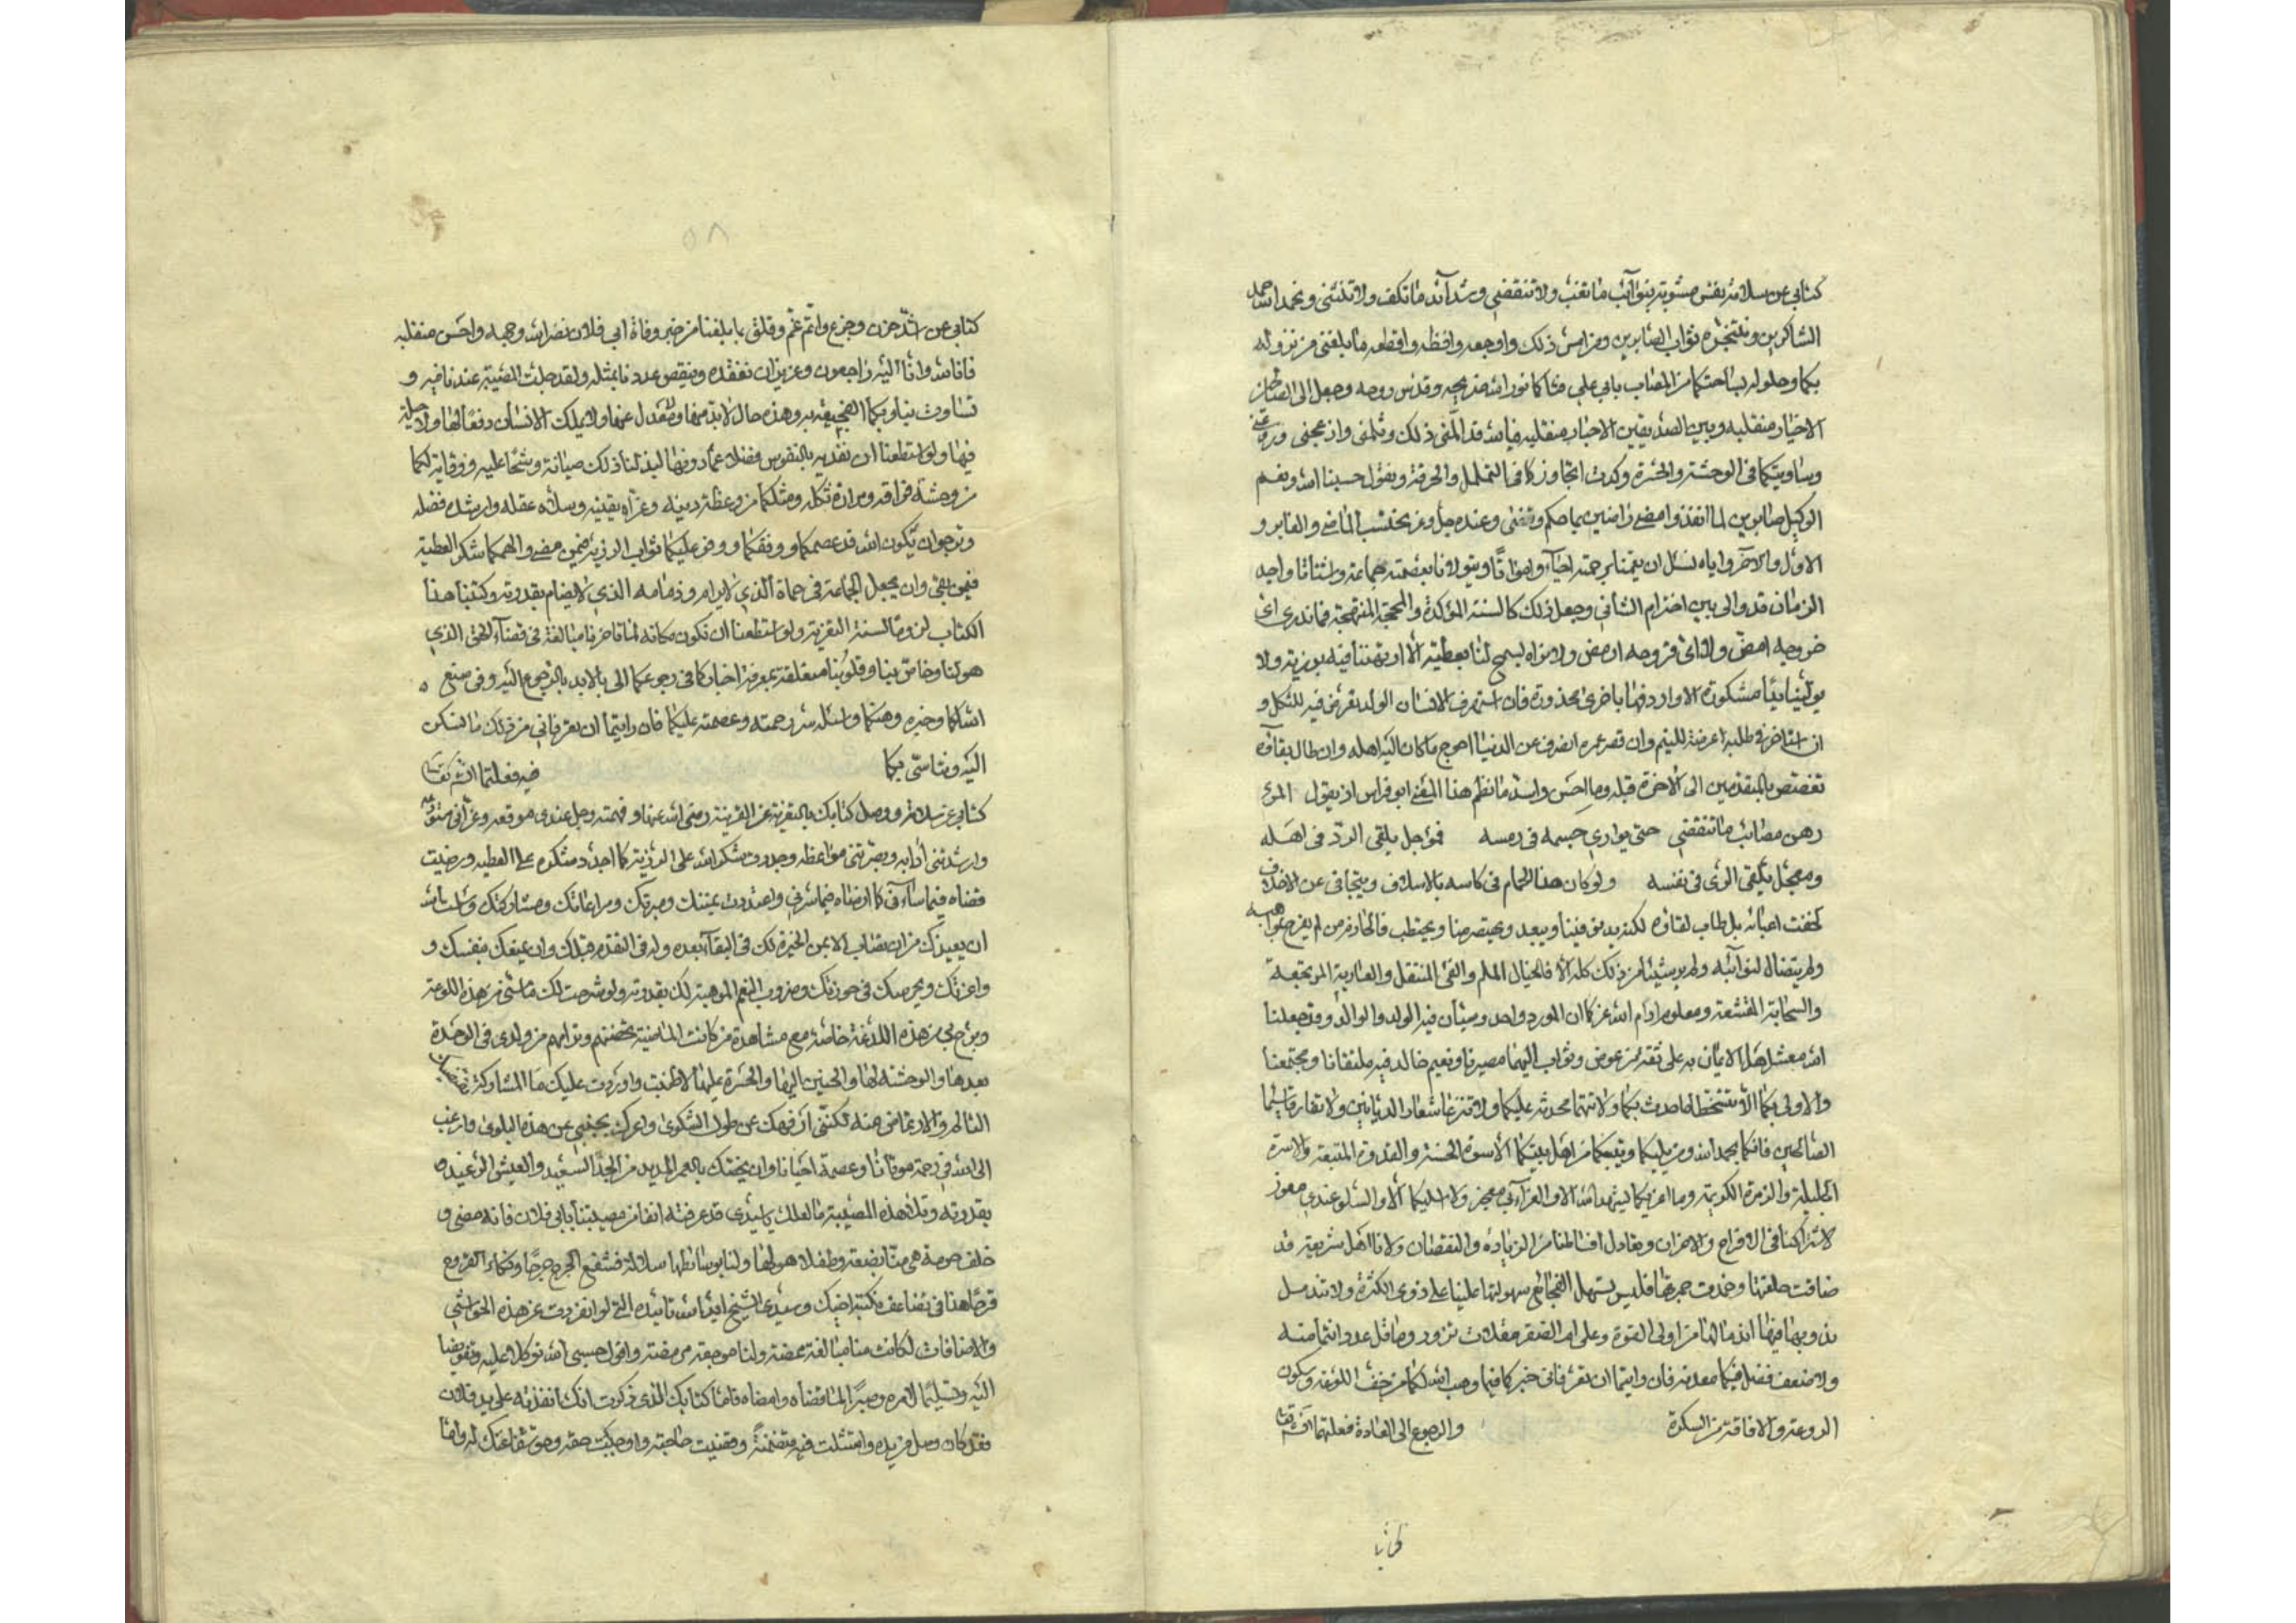 كتابي عن سلامة نفس مشوبة بنوائب ما تغب ولا تنقضي وشدائد ما تكف ولا تنثني ونحمد الله حمد
الشاكرين ونستنجزه ثواب الصابرين ومن امض ذلك واوجعه وافظه واقطعه ما بلغني من نزوله
بكما وحلوله بساحتكما من المصاب بابي علي نور الله ضريحه وقدس روحه وجعل الى
الاخيار منقلبه وبين الصديقين الاحبار فيالله قد المني ذلك وثلمني وازعجني
وساويتكما في الوحشة والحسرة وكدت اتجاوزكما في التململ والحرقة ونقول حسبنا الله ونعم
الوكيل صابرين لما انفذ وامضى راضين بما حكم وقضى وعنده جل وعز نحتسب الماضي والغابر و
الاول والآخر واياه نسئل ان يمتنا برحمته احياء وامواتا ويتولانا بعصمته جماعة واشتاتا واجد
الزمان قد والى بين اخترام الثاني وجعل ذلك كالسنة المؤكدة والمحجة المنتهجة فما ندري اي
خروجه امض ولا اي قروحه ارمض ولا نراه يسمح لنا بعطية الا ارتهننا فيه برزية ولا
يولينا يدا مشكورة الا واردفها باخرى محذورة فان استطرف الانسان الولد تعرض فيه للثكل و
ان استاخر في طلبه اعرضه لليتم وان قصر عمره انصرف عن الدنيا احوج ما كان اليه اهله وان طال بقاؤه
تغصص بالمتقدمين الى الآخرة قبله وما احسن واسد ما نظم هذا المعنى ابو فراس اذ يقول المرء
رهن مصائب ما تنقضي حتى يواري جسمه في رمسه فمؤجل يلقى الردى في اهله
ومعجل يلقى الردى في نفسه ولو كان هذا الحمام في كاسه بالاسلاف ويتجافى عن الاخلاف
لخفت اعباؤه بل طاب لقاؤه لكنه يدنو فينا ويبعد ويعتصر منا ويحتطب فالحازم من لم يفرح بمواهبه
ولم يتضال لنوائبه ولم ير شيئا من ذلك كله الا كالخيال الملم والفيء المنتقل والعارية المرتجعة
والسحابة المنقشعة ومعلوم ادام الله عزكما ان المورد واحد وسيان فيه الولد والوالد وقد جعلنا
الله معشر اهل الايمان به على ثقة من عوض وثواب اليهما مصيرنا ونعيم خالد فيه ملتقانا ومجتمعنا
والاولى بكما الا تتسخطا ما حدث بكما ولا تتهما محدثه عليكما ولا تنزعا شعار الديانين ولا تفارقا سيما
الصالحين فانكما بحمد الله ومن يليكما ويتبعكما من اهل بيتكما الاسوة الحسنة والقدوة المتبعة والاسرة
الجليلة والزمرة الكريمة وما اعزيكما ليشهد الله الا والعزاء بي معجز ولا اسليكما الا والسلو عندي معوز
لاشتراكنا في الافراح والاحزان وتعادل اقسامنا من الزيادة والنقصان ولانا اهل شريعة قد
ضاقت حلقتها وخمدت جمرتها فليس يسهل الفجائع سهولتها علينا على ذوي الكثرة ولا تندمل
ندوبها فينا اندمالها من اولي القوة وعلى ام الصقر مقلات نزور وما قل عدد انتما منه
ولا ضعف فضل فيكما معدنه فان رايتما ان تعرفاني خبركما فيما وهب الله لكما من خف اللوعة وسكون
الروعة والافاقة من السكرة والرجوع الى العادة فعلتما ان شاء الله تعالى
٥٨
كتابي عن اشد حزن وجزع واتم غم وقلق بما بلغنا من خبر وفاة ابي فلان نضر الله وجهه واحسن منقلبه
فانا لله وانا اليه راجعون وعزيز ان نفقده وينقص عددنا بمثله ولقد جلت المصيبة عندنا فيه و
تساوت بنا وبكما الفجيعة به وهذه حال لا بد منها ولا معدل عنها ولا يملك الانسان دفعا لها ولا حيلة
فيها ولو استطعنا ان نفديه بالنفوس فضلا عما دونها لبذلنا ذلك صيانة وشحا عليه ووقاية لكما
من وحشة فراقه ومرارة ثكله ومثلكما من وعظه دينه وعزاه يقينه وسلاه عقله وارشده فضله
ونرجو ان يكون الله قد عصمكما ووفقكما ووفر عليكما ثواب الرزية فيمن مضى والهمكما شكر العطية
فيمن بقي وان يجعل الجماعة في حماه الذي لا يرام وذمامه الذي لا يضام بقدرته وكتبنا هذا
الكتاب لزوما لسنة التعزية ولو استطعنا ان نكون مكانه لما تاخرنا مبالغة في قضاء الحق الذي
هو لنا وخاص بنا وقلوبنا متعلقة بمعرفة اخباركما في رجوعكما الى ما لا بد بالرجوع اليه وفي صنع
الله لكما وخيره وهنتكما واسئله رحمته وعصمته عليكما فان رايتما ان تعرفاني من ذلك ما نسكن
اليه ونتاسى بكما فيه فعلتما ان شاء الله تعالى
كتابي عن سلامة ووصل كتابك بالتعزية عن القرينة رضي الله عنها وفهمته وجل عندي موقعه وعزاني
وارشدتني آدابه وبصرتني مواعظه وجددت شكر الله على الرزية كما اجدد شكره على العطية ورضيت
قضاه فيما ساء كما ارضاه فيما سر واعتددت بمنتك ومبرتك ومراعاتك ومشاركتك وسالت الله
ان يعيذك من ان تصاب الا بمن الخيرة لك في البقاء بعده وله في التقدم قبلك وان يمتعك بنفسك و
واعزتك ويحرسك في حوزتك وضروب النعم الموهبة لك بقدرته ولو شرحت لك ما مسني من هذه اللوعة
وبرح بي من هذه اللدغة خاصة مع مشاهدة من كانت الماضية تحضنهم وتراءهم من ولدي في الوحدة
بعدها والوحشة لها والحنين اليها والحسرة عليها لاطنبت واوردت عليك ما المشاركة
التالم والارتماض منه لكنني ارفهك عن طول الشكوى واعرك بجنبي عن هذه البلوى وارغب
الى الله في رحمة موتانا وعصمة احيانا وان يختصك بالعمر المديد من الجد السعيد والعيش الرغيد
بقدرته وتلا هذه المصيبة ما لعلك يا سيدي قد عرفته آنفا من مصيبتنا بابي فلان فانه مضى و
خلف حرمة هي منا بضعة وطفلا هو لها ولنا بوساطتها سلالة فشفع الجرح جرحا ونكا القروح
قرحا هذا في تضاعف نكبة اخيك وسيدي الشيخ ايد الله تاييده التي لو انفردت عن هذه الحواشي
والاضافات لكانت منا مبالغة ممضة ولنا موجعة مرمضة واقول حسبي الله توكلا عليه وتفويضا
اليه وتسليما لامره وصبرا لما قضاه وامضاه فاما كتابك الذي ذكرت انك انفذته على يد فلان
فقد كان وصل من يده وامتثلت فيه متضمنه وقضيت حاجته واوجبت حقه وحق شفاعتك له واما